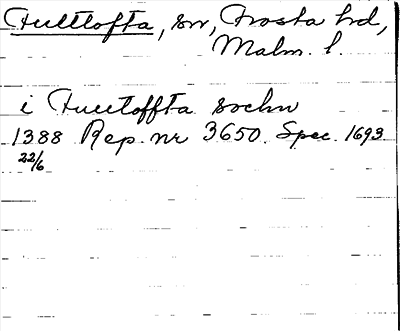 Hultlofta, sn, Frosta hd,
Malm. l.
i Huetloffta sochn
1388 Rep. nr 3650. Spec. 1693
22/6